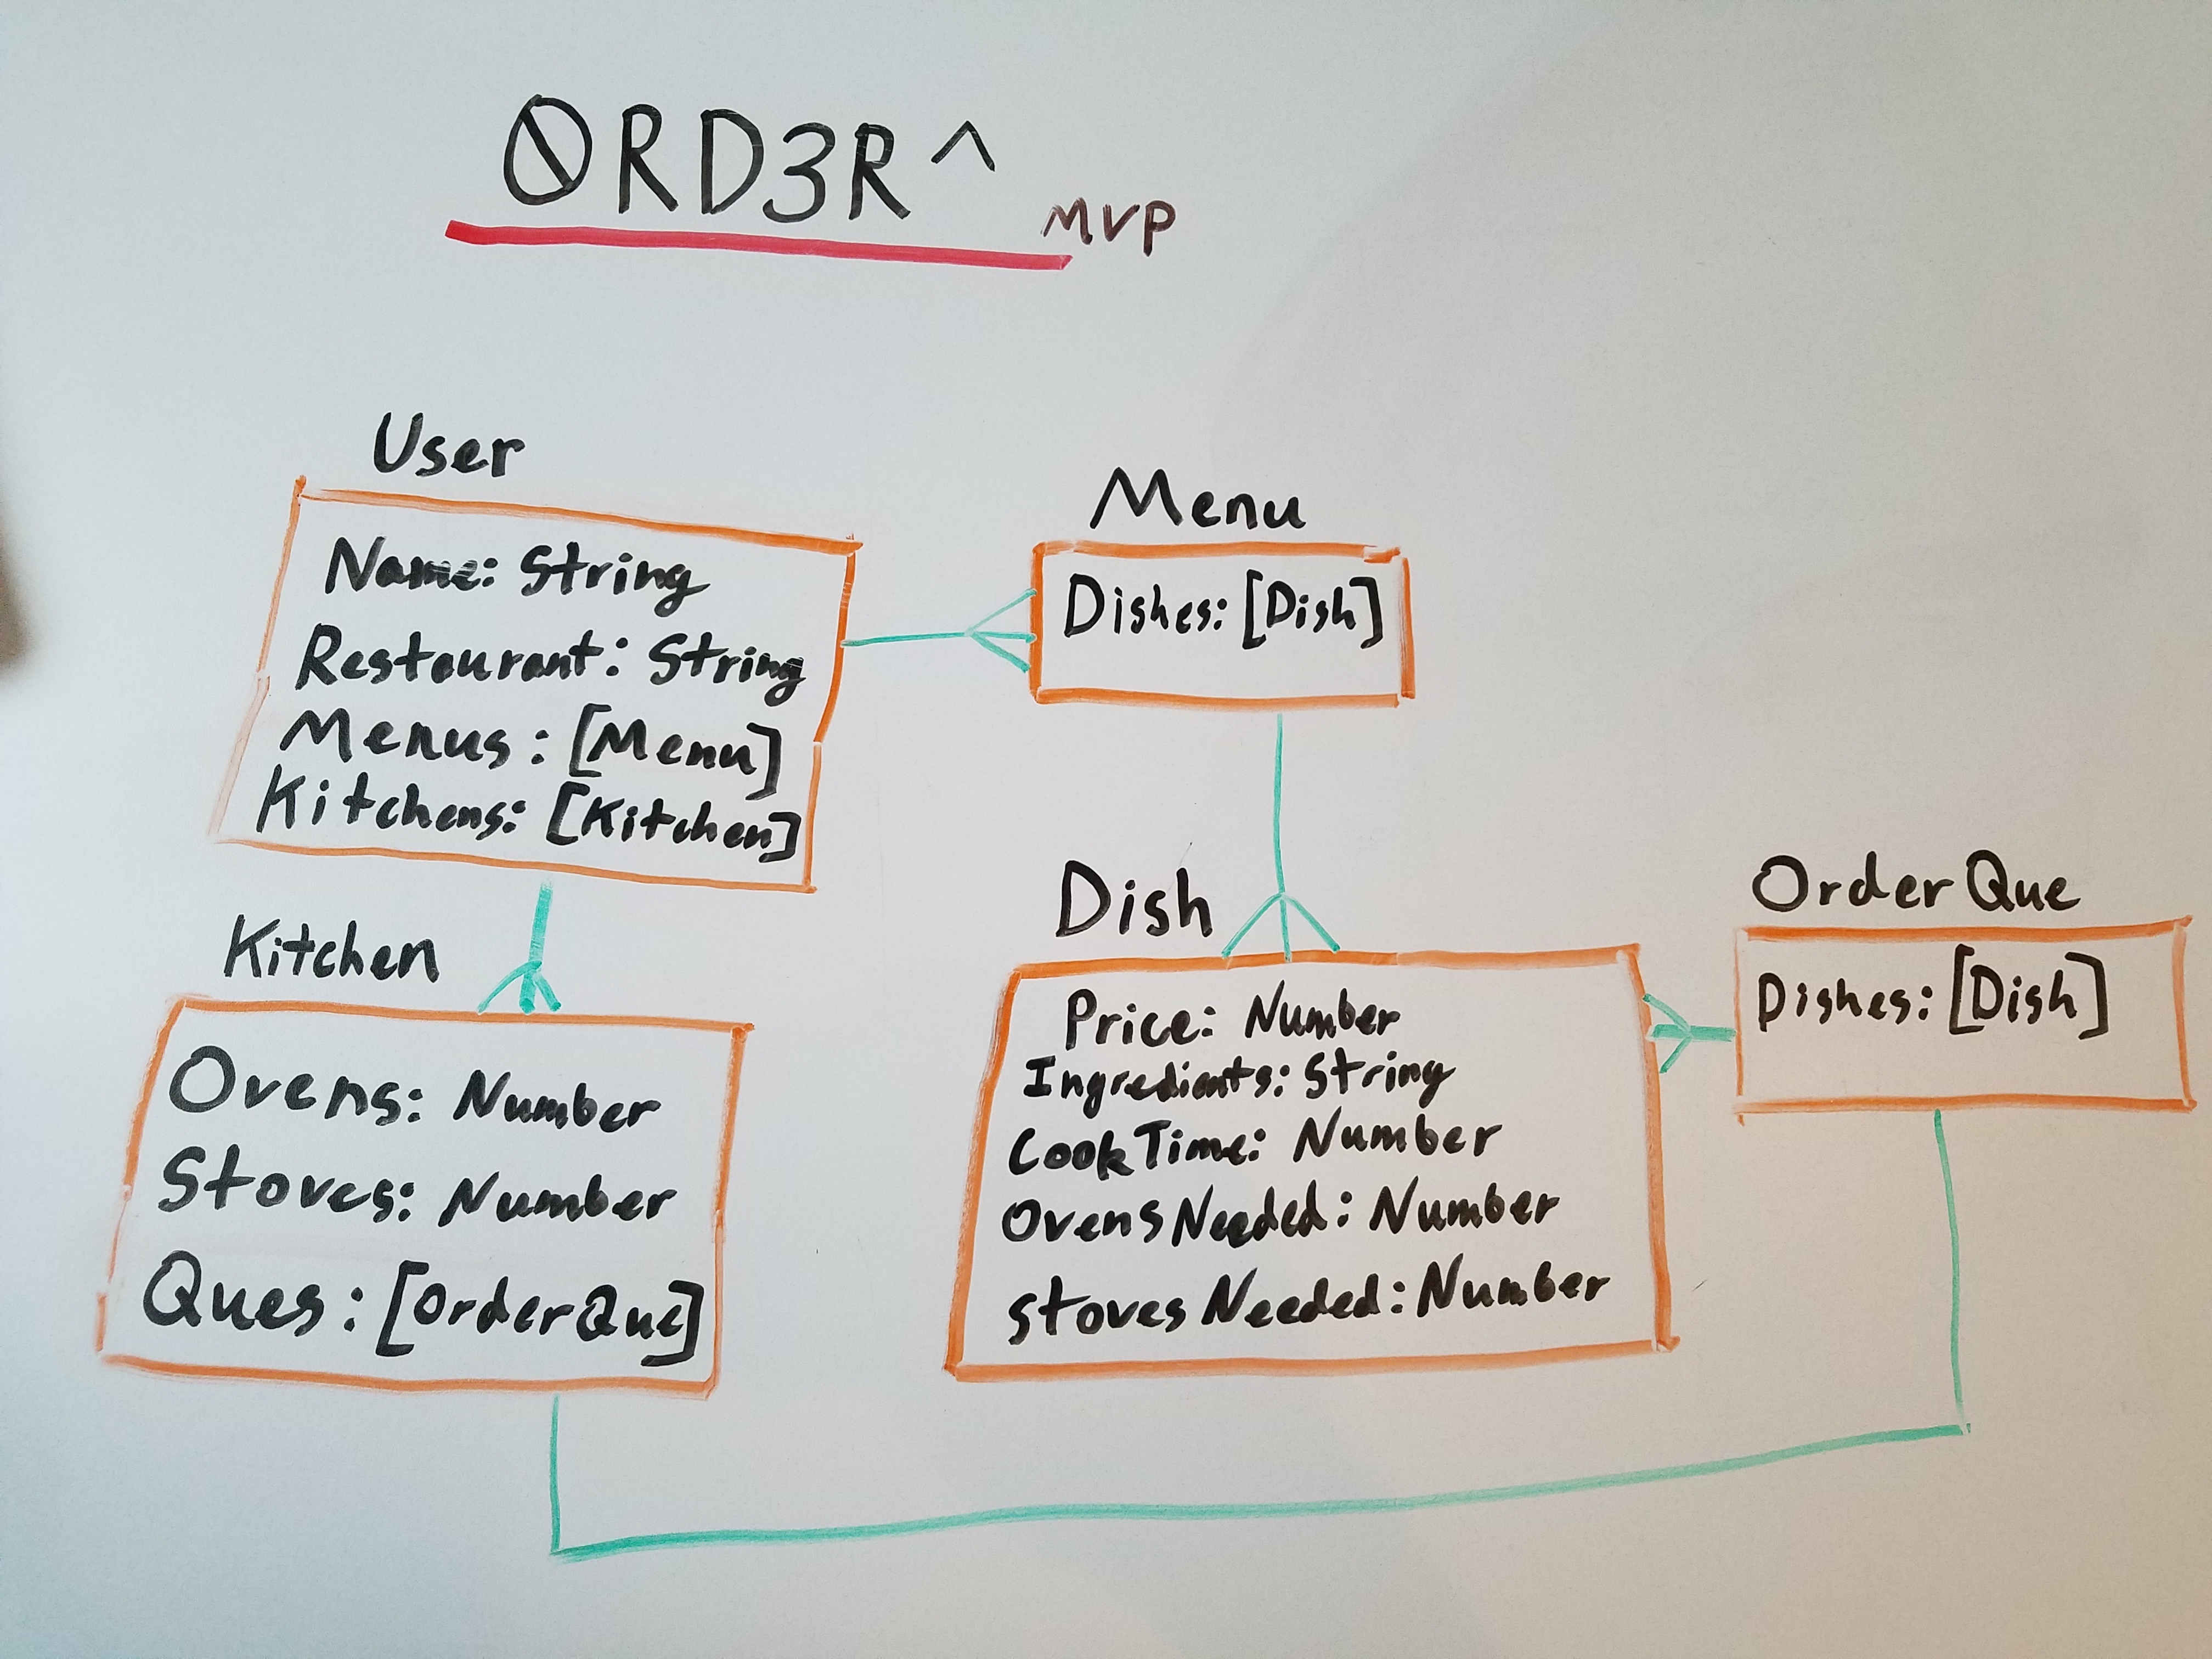 ØRD3R^
MVP
User
Name: String
Restourant: String
Menus: [Menu]
Kitchens: [Kitchen]
Menu
Dishes: [Dish]
Kitchen
Ovens: Number
Stoves: Number
Ques: [OrderQue]
Dish
Price: Number
Ingredients: String
CookTime: Number
OvensNeeded: Number
stovesNeeded: Number
OrderQue
Dishes: [Dish]